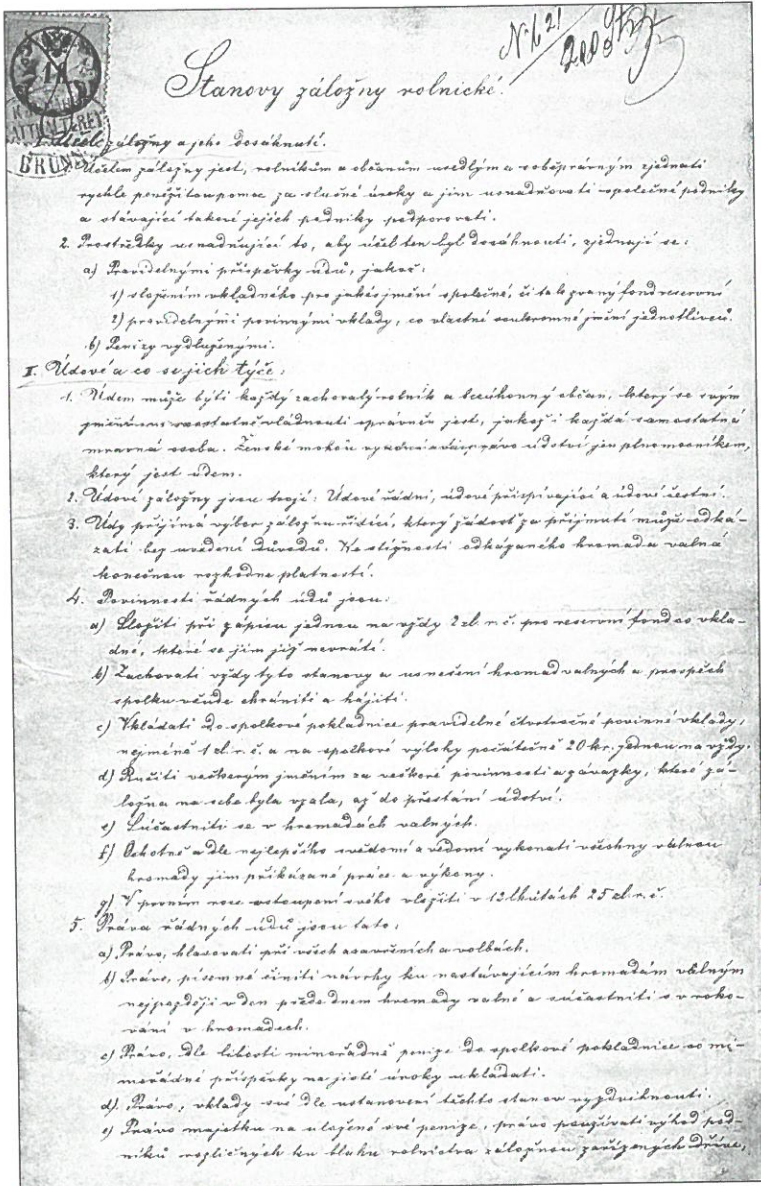 N. 621
Stanovy záložny rolnické.
I. Účel záložny a jeho dosáhnutí.
1. Účelem záložny jest, rolníkům a občanům usedlým a soběprávným zjednati
rychle peněžitou pomoc za slušné úroky a jim usnadňovati společné podniky
a stávající takové jejich podniky podporovati.
2. Prostředky usnadňující to, aby účel ten byl dosáhnutí, zjednají se:
a) Pravidelnými příspěvky údů, jakož:
1) složením vkladného pro jakés jmění společné, či tak zvaný fond reservní
2) pravidelnými povinnými vklady, co vlastní soukromné jmění jednotlivců.
b) Penězy vydluženými.
II. Údové a co se jich týče:
1. Údem může býti každý zachovalý rolník a bezúhonný občan, který se svým
jměním samostatně vládnouti oprávněn jest, jakož i každá samostatná
mravná osoba. Ženské mohou právo údství jen plnomocníkem,
který jest údem.
2. Údové záložny jsou trojí: Údové řádní, údové přispívající a údové čestní.
3. Údy přijímá výbor záložnu řídící, který žádost za přijmutí může odká-
zati bez uvedení důvodu. Ke stížnosti odkázaného hromada valná
konečnou rozhodne platností.
4. Povinnosti řádných údů jsou:
a) Složiti při zápisu jednou na vždy 2 zl. r. č. pro reservní fond co vkla-
dné, které se jim již nevrátí.
b) Zachovati vždy tyto stanovy a usnešení hromad valných a prospěch
spolku všude chrániti a hájiti.
c) Vkládati do spolkové pokladnice pravidelné čtvrtročné povinné vklady,
nejméně 1 zl. r. č. a na spolkové výlohy počátečně 20 kr. jednou na vždy.
d) Ručiti veškerým jměním za veškeré povinnosti a závazky, které zá-
ložna na sebe byla vzala, až do přestání údství.
e) Súčastniti se v hromadách valných.
f) Ochotně a dle nejlepšího svědomí a vědomí vykonati všechny valnou
hromadou jim přikázané práce a výkony.
g) V prvním roce vstoupení svého vložiti v 12 lhůtách 25 zl. r. č.
5. Práva řádných údů jsou tato:
a) Právo, hlasovati při všech uzavřeních a volbách.
b) Právo, písemně činiti návrhy ku nastávajícím hromadám valným
nejpozději v den přede dnem hromady valné a súčastniti se v roko-
vání v hromadech.
c) Právo, dle libosti mimořádně peníze do spolkové pokladnice co mi-
mořádné příspěvky na jisté úroky ukládati.
d) Právo, vklady své dle ustanovení těchto stanov vyzdvihnouti.
e) Právo majetku na uložené své peníze, právo používati výhod pod-
niků rozličných ku blahu rolnictva záložnou zařízených dříve,